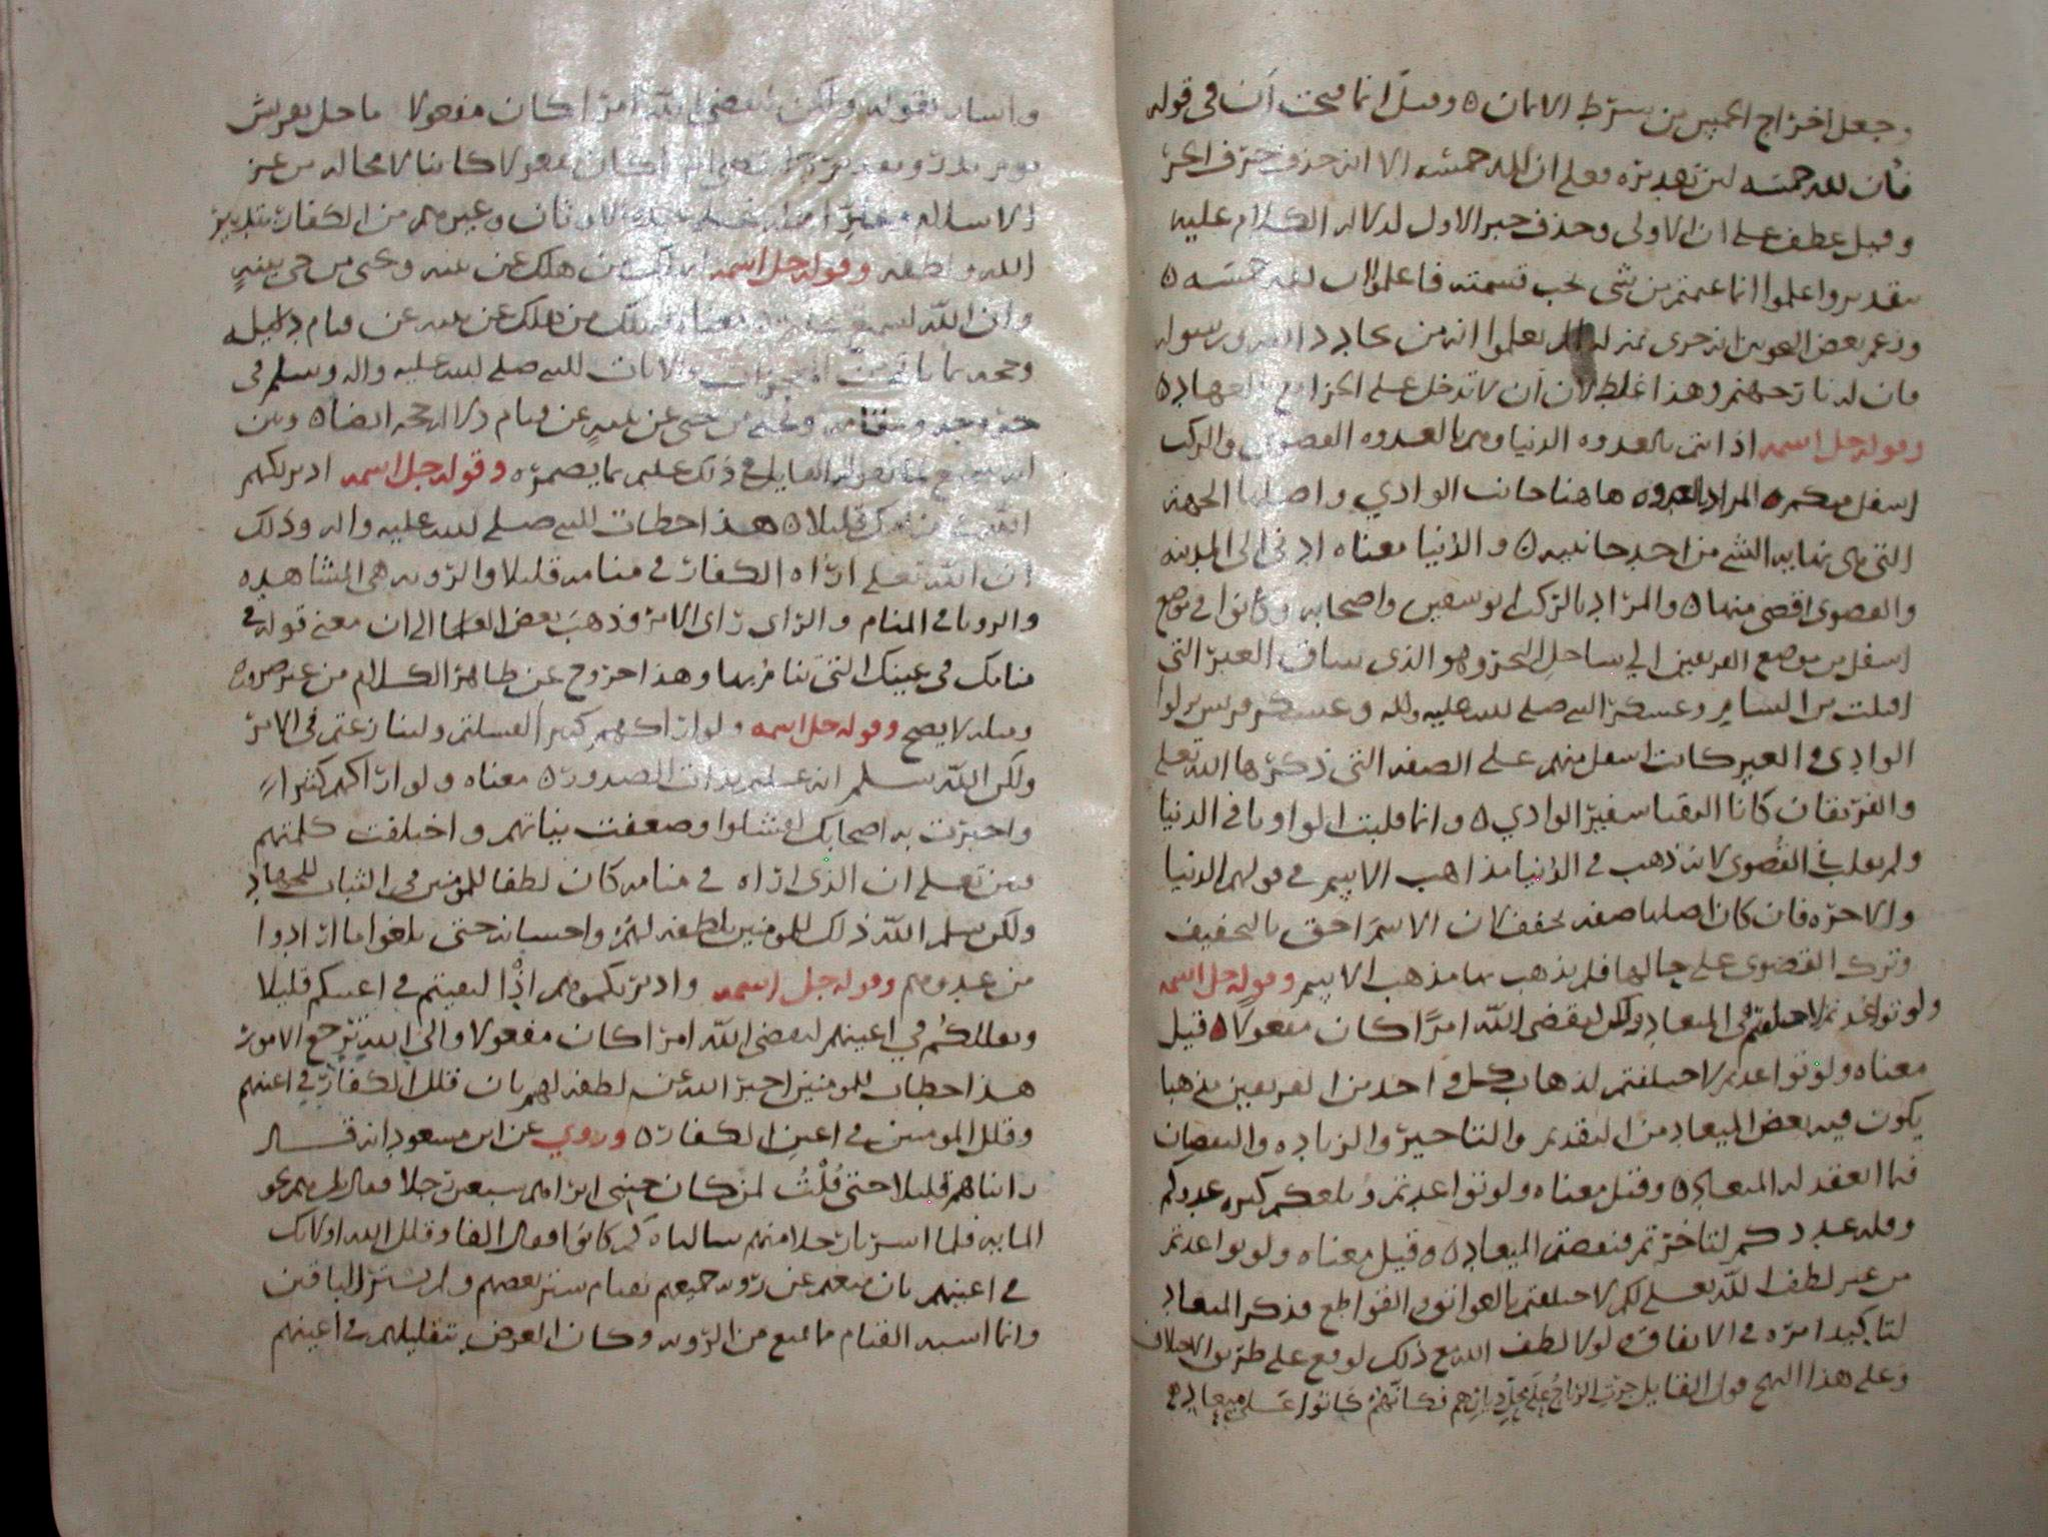 وجعل اخراج الخمس من شرط الايمان ٥ وقيل انما فتحت أن في قوله
فأن لله خمسه لان تقديره فعلى ان لله خمسه الا انه حذف حرف الجر
وقيل عطف على ان الاولى وحذف خبر الاول لدلالة الكلام عليه
بتقدير واعلموا انما غنمتم من شي يجب قسمته فاعلموا ان لله خمسه ٥
وزعم بعض النحويين انه جرى بمنزلة الم يعلموا انه من يحادد الله ورسوله
فان له نار جهنم وهذا غلط لان أن لا تدخل على الجزا مع العماد ٥
وقوله جل اسمه اذ انتم بالعدوه الدنيا وهم بالعدوه القصوى والركب
اسفل منكم ٥ المراد بالعدوه هاهنا جانب الوادي واصلها الجهة
التي هي نهاية الشي من احد جانبيه ٥ والدنيا معناه ادنى الى المدينة
والقصوى اقصى منها ٥ والمراد بالركب ابو سفين واصحابه وكانوا في موضع
اسفل من موضع الفريقين الي ساحل البحر وهو الذي ساق العير التي
اقبلت من الشام وعسكر النبي صلى الله عليه واله وعسكر قريش نزلوا
الوادي والعير كانت اسفل منهم على الصفه التي ذكرها الله تعلى
والفريقان كانا التقيا سفير الوادي ٥ وانما قلبت الواو يا في الدنيا
ولم يقلب في القصوى لانه ذهب في الدنيا مذاهب الاسم في قولهم الدنيا
والاخره فان كان اصلها صفه تخفف لان الاسم احق بالتخفيف
وترك القصوى على حالها فلم يذهب بها مذهب الاسم وقوله جل اسمه
ولو تواعدتم لاختلفتم في الميعاد ولكن ليقضي الله امرًا كان مفعولا ٥ قيل
معناه ولو تواعدتم لاختلفتم لذهاب كل واحد من الفريقين مذهبا
يكون فيه بعض الميعاد من التقديم والتاخير والزياده والنقصان
فيما انعقد له الميعاد ٥ وقيل معناه ولو تواعدتم وبلغكم كثره عددهم
وقله عددكم لتاخرتم فنقضتم الميعاد ٥ وقيل معناه ولو تواعدتم
من غير لطف الله تعلى لكم لاختلفتم بالعوائق والقواطع فذكر الميعاد
لتاكيد امره في الاتفاق ولولا لطف الله مع ذلك لوقع على طريق الاختلاف
وعلى هذا النهج قول القايل جرت الرياح على محل ديارهم فكأنهم كانوا على ميعاد ٥
واشار بقوله ولكن ليقضي الله امرا كان مفعولا ما حل بقريش
يوم بدر كان مفعولا كاينا لا محاله من عز
الاسلام الاوثان وغيرهم من الكفار بتدبير
الله ولطفه وقوله جل اسمه ليهلك من هلك عن بينه ويحيى من حي عن بينه
وان الله لسميع عليم ٥ معناه ليهلك من هلك عن بينه عن قيام دليله
وحجه بما من المعجزات والايات للنبي صلى الله عليه واله وسلم في
ويحيى من حيي عن بينه عن قيام دلالة وحجه ايضا ٥ وبين
انه سميع لما يقوله القايل في ذلك عليم بما يضمره وقوله جل اسمه اذ يريكهم
الله في منامك قليلا ٥ هذا خطاب للنبي صلى الله عليه واله وذلك
ان الله تعلى اراه الكفار في منامه قليلا والرويه هي المشاهده
والرويا في المنام والراي راى الامر وذهب بعض العلما الى ان معنى قوله في
منامك في عينك التي تنام بها وهذا خروج عن ظاهر الكلام من غير ضروره
ومثله لا يصح وقوله جل اسمه ولو اراكهم كثيرا لفشلتم ولتنازعتم في الامر
ولكن الله سلم انه عليم بذات الصدور ٥ معناه ولو اراكهم كثيرا
واخبرت به اصحابك لفشلوا وضعفت نياتهم واختلفت كلمتهم
فبين تعلى ان الذي اراه في منامه كان لطفا للمومنين في الثبات للجهاد
ولكن سلم الله ذلك للمومنين بلطفه لهم واحسانه حتى بلغوا ما ارادوا
من عدوهم وقوله جل اسمه واذ يريكموهم اذ التقيتم في اعينكم قليلا
ويقللكم في اعينهم ليقضي الله امرا كان مفعولا والي الله ترجع الامور
هذا خطاب للمومنين اخبر الله عن لطفه لهم بان قلل الكفار في اعينهم
وقلل المومنين في اعين الكفار ٥ وروي عن ابن مسعود انه قال
رايناهم قليلا حتى قُلْتُ لمن كان جنبي اتراهم سبعين رجلا فقال بل هم نحو
المايه فلما اسرنا رجلا منهم سالناه كم كانوا فقال الفا وقلل الله اولائك
في اعينهم بان منعهم عن رويه جميعهم بقتام ستر بعضهم ولم يستر الباقين
وانما اشبه القتام ما منع من الرويه وكان الغرض بتقليلهم في اعينهم